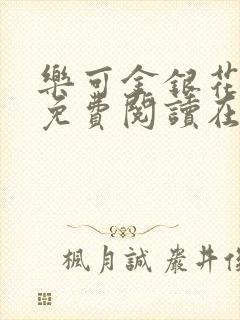 樂可金銀花
免費閱讀在
楓月誠 嚴井俊